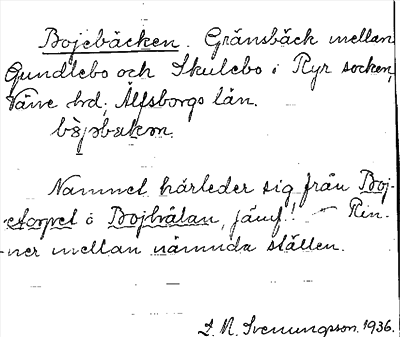 Bojebäcken. Gränsbäck mellan
Gundlebo och Skulebo i Ryr socken,
Väne hd, Älfsborgs län.
Namnet härleder sig från Boj-
etorpet o Bojhålan, jämf! — Rin-
ner mellan nämnda ställen.
Svenungsson. 1936.